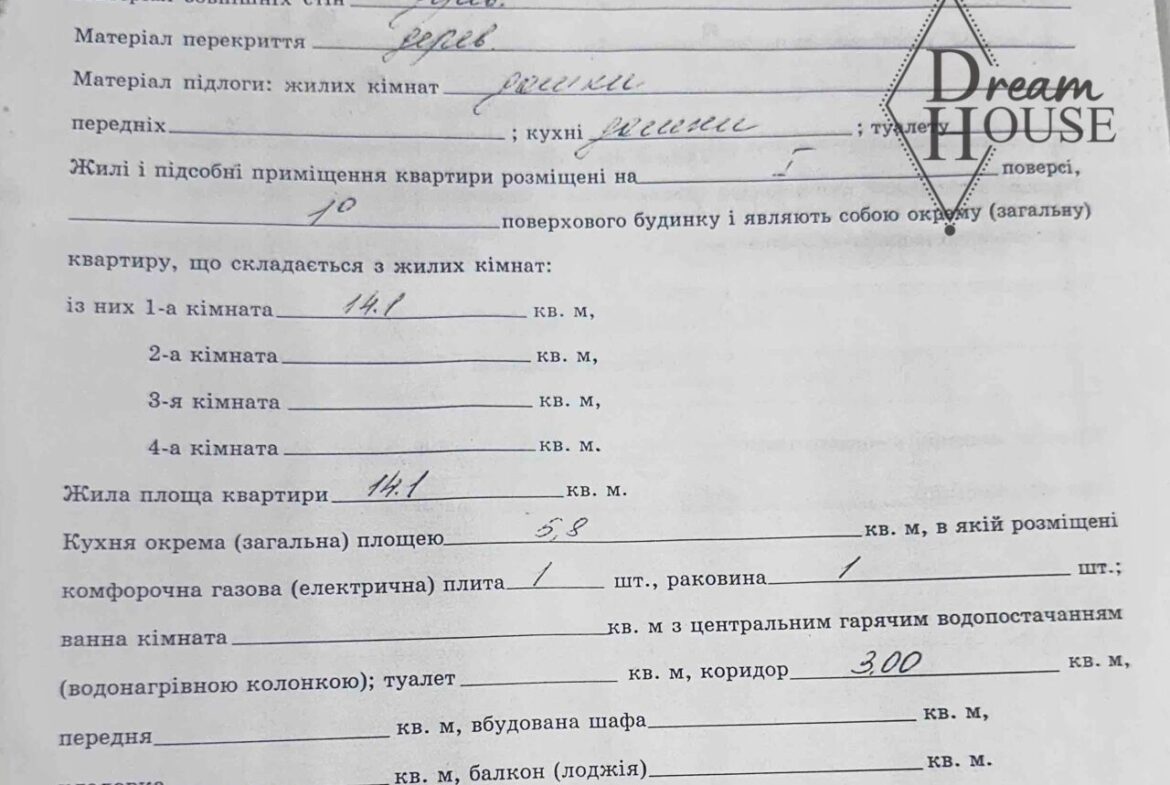 Матеріал зовнішніх стін
Матеріал перекриття дерев.
Матеріал підлоги: жилих кімнат дошки
передніх ; кухні дошки ; туалету
Dream
HOUSE
Жилі і підсобні приміщення квартири розміщені на поверсі,
поверхового будинку і являють собою окрему (загальну)
квартиру, що складається з жилих кімнат:
із них 1-а кімната 14.1 кв. м,
2-а кімната кв. м,
3-я кімната кв. м,
4-а кімната кв. м.
Жила площа квартири 14.1 кв. м.
Кухня окрема (загальна) площею 5,8 кв. м, в якій розміщені
комфорочна газова (електрична) плита 1 шт., раковина 1 шт.;
ванна кімната кв. м з центральним гарячим водопостачанням
(водонагрівною колонкою); туалет кв. м, коридор 3,00 кв. м,
передня кв. м, вбудована шафа кв. м,
кв. м, балкон (лоджія) кв. м.